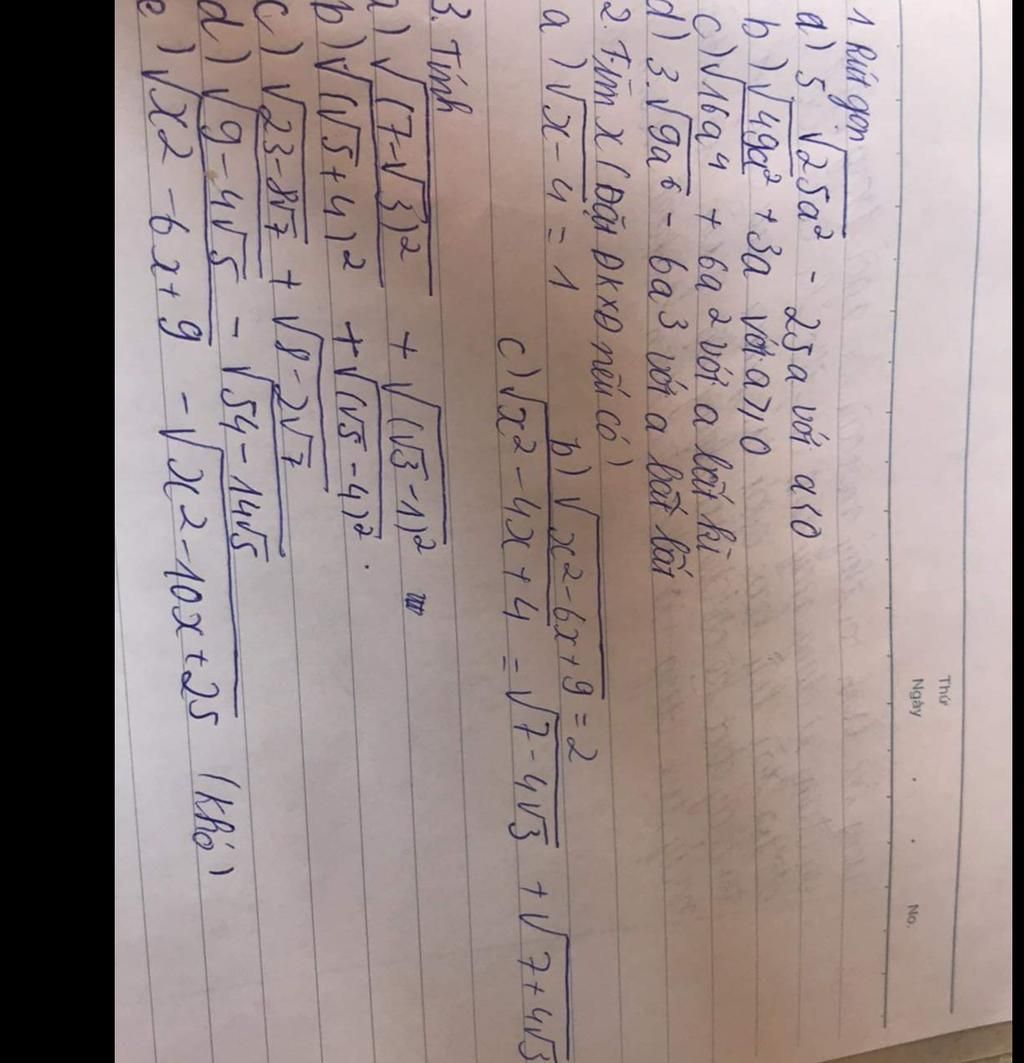 Thứ
Ngày . . No.
1 Rút gọn
a) 5 √25a² - 25a với a<0
b) √49a² + 3a với a≥0
c) √16a⁴ + 6a² với a bất kì
d) 3.√9a⁶ - 6a³ với a bất
2. Tìm x (Đặt ĐKXĐ nếu có)
a) √x-4 = 1 b) √x²-6x+9 = 2
c) √x²-4x+4 = √7-4√3 + √7+4√3
3. Tính
a) √(7-√3)² + √(√3-1)² =
b) √(√5+4)² + √(√5-4)².
c) √23-8√7 + √8-2√7
d) √9-4√5 - √54-14√5
e) √x2-6x+9 - √x2-10x+25 (khó)